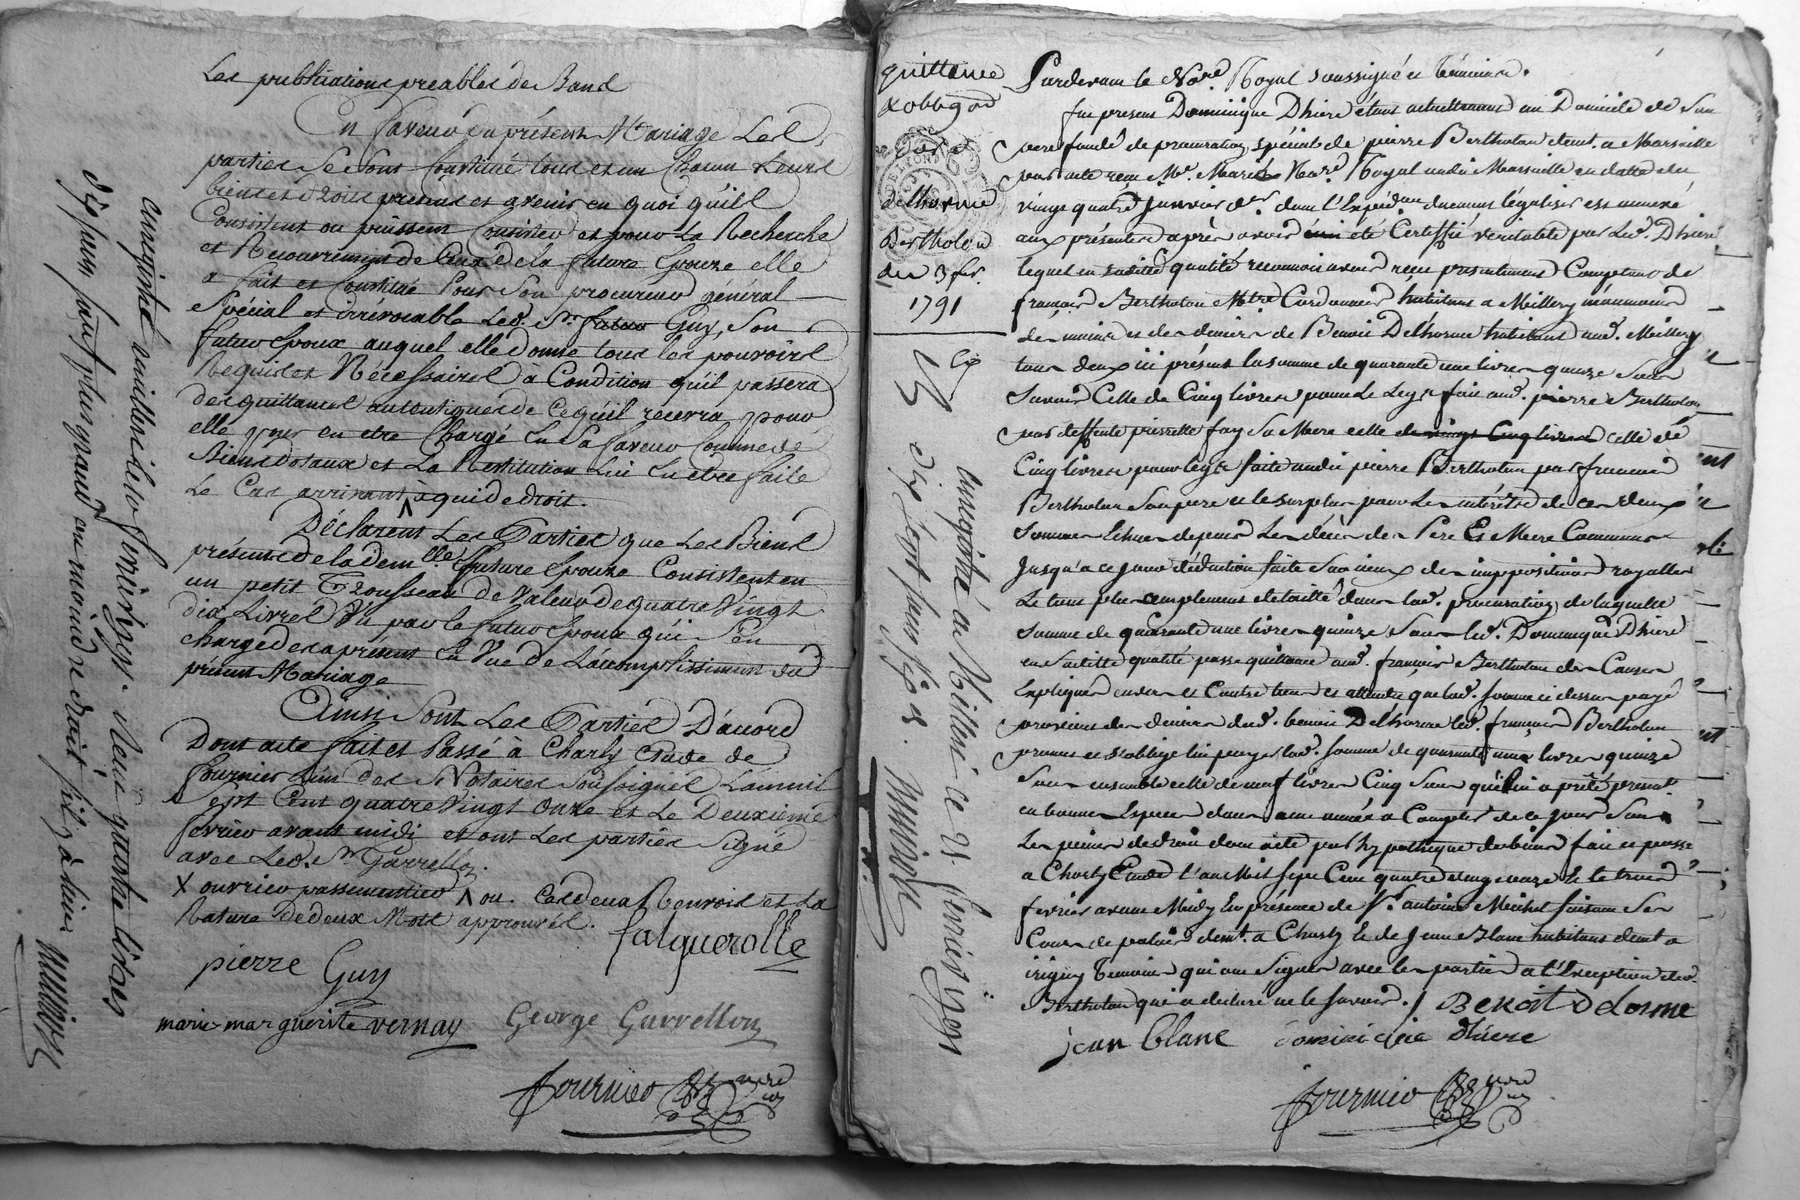 Les publications preables de Bans
En faveur du présent Mariage Les
parties se sont Constitué tous et un Chacun Leurs
biens et droits présents et avenir en quoi qu'ils
Consistent ou puissent Consister et pour La Recherche
et Recouvrement de Ceux de la future Epouze elle
a fait et Constitué Pour Son procureur général
Spécial et irrévocable Led. Sr. futur Guy, Son
futur Epoux auquel elle donne tous les pouvoirs
Requis et Nécessaires à Condition qu'il passera
des quittances autentiques de Ce qu'il recevra pour
elle pour en etre Chargé En Sa faveur Comme de
Biens dotaux et La Restitution Lui En etre faite
Le Cas arrivant à qui de droit.
Déclarent Les Parties que Les Biens
présents de la demlle future Epouze Consistent en
un petit Trousseau de Valeur de quatre Vingt
dix Livres Vu par le futur Epoux qui S'en
charge des a présent En Vue de L'acomplissement du
présent Mariage
Ainsi Sont Les Parties D'acord
Dont acte fait et Passé à Charly Etude de
fournier L'un des Notaires Soussignés L'an mil
Sept Cent quatre Vingt Onze et Le Deuxieme
fevrier avant midi et ont Les parties Signé
avec Led. Sr. Garrellon.
X ouvrier passementier ou Cesdeux Renvois et La
Rature De deux Mots approuvés.
falquerolle
pierre Guy
marie marguerite vernay George Garrellon
fournier nore
enregistré à millerie le 10 fevrier 1791. Reçu quatre livres
dix sous, sauf plus grand ou moindre droit s'il y a lieu
quittance
& obligon
delhorme
Bertholon
du 3 fr.
1791
enregistré à Millerie ce 15 fevrier 1791
Pardevant le Nore. Royal soussigné et témoins.
fut present Dominique Dhiere étant actuellement au Domicile de Son
pere fondé de procuration spéciale de pierre Bertholon demt. a Marseille
par acte reçu Me. Nore Royal audit Marseille en datte du
vingt quatre Janvier der. dont l'Expédon duement légalisée est annexé
aux présentes après avoir été Certiffié véritable par Led. Dhiere
lequel en saditte qualité reconnoit avoir reçu présentement Comptant de
françois Bertholon Mtre Cordonnier habitant a Millery
des mains et des deniers de Benoit Delhorme habitant aud. Millery
tous deux ici présent la somme de quarante une livres quinze sous
Savoir Celle de Cinq livres pour le Legs fait aud. pierre Bertholon
par deffunte pierrette fay Sa Mere celle de vingt Cinq livres celle de
Cinq livres pour legs faite audit pierre Bertholon par françois
Bertholon Son pere et le surplus pour les intérêts de ces deux
Sommes Echus depuis Le décès des Pere Et Mere Communs
Jusqu'a ce jour déduction faite sur iceux des impositions royalles
Le tout plus amplement détaillé dans lad. procuration de laquelle
somme de quarante une livres quinze Sous led. Dominique Dhiere
en Saditte qualité passe quittance aud. françois Bertholon des Causes
Expliquées et attendu que lad. somme ci dessus payé
provient des deniers dud. benoit Delhorme led. françois Bertholon
promet et s'oblige lui payer lad. somme de quarante une livres quinze
Sous ensemble celle de neuf livres Cinq Sous qu'il lui a prêté présent.
en bonnes Especes dans une année a Compter de ce jour Sous
Les peines de droit dont acte par hypotheque de biens fait et passé
a Charly Etude l'an Mil Sept Cent quatre vingt onze Et le trois
fevrier avant Midy En présence de Sr. antoine Michel faisant Ses
Cours de pratique demt. a Charly Et de Jean Blanc habitant demt a
irigny temoins qui ont Signé avec les parties a l'Exception dud.
Bertholon qui a declaré ne le savoir. / Benoit Delorme
jean blanc dominique dhiere
fournier nore